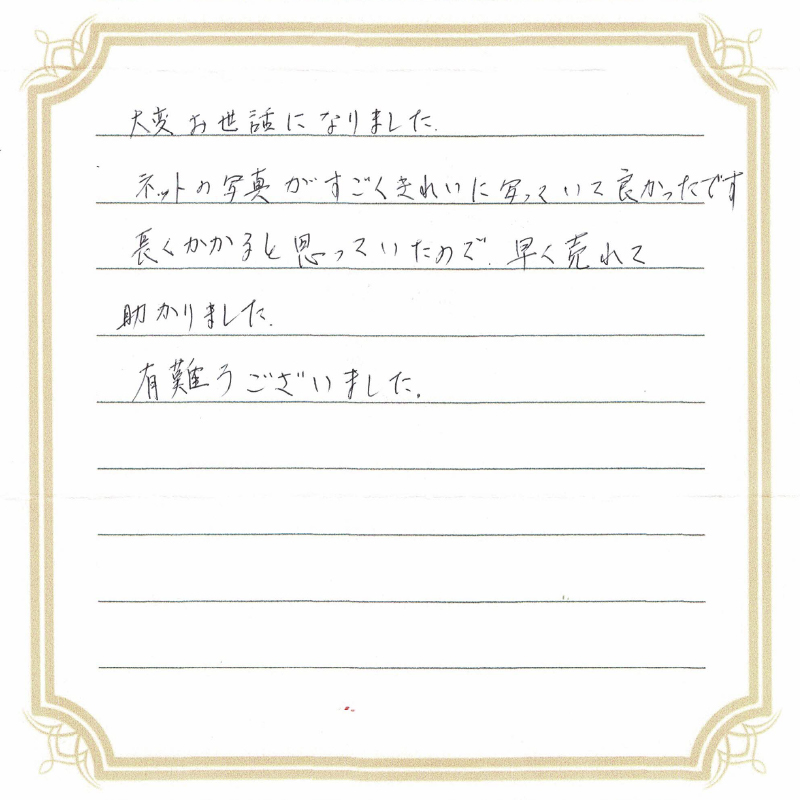 大変お世話になりました.
ネットの写真がすごくきれいに写っていて良かったです
長くかかると思っていたので.早く売れて
助かりました.
有難うございました.